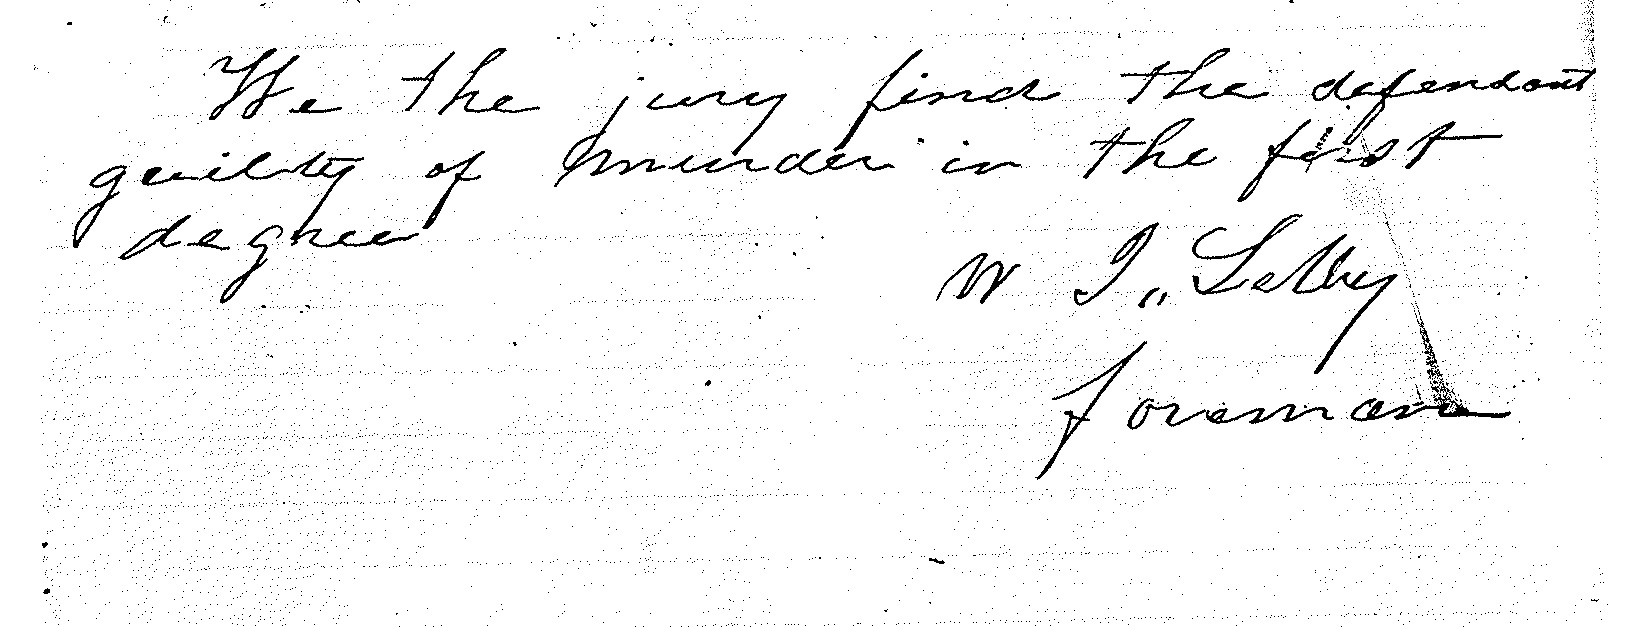 We the jury find the defendant
guilty of murder in the first
degree
W I,,
foreman